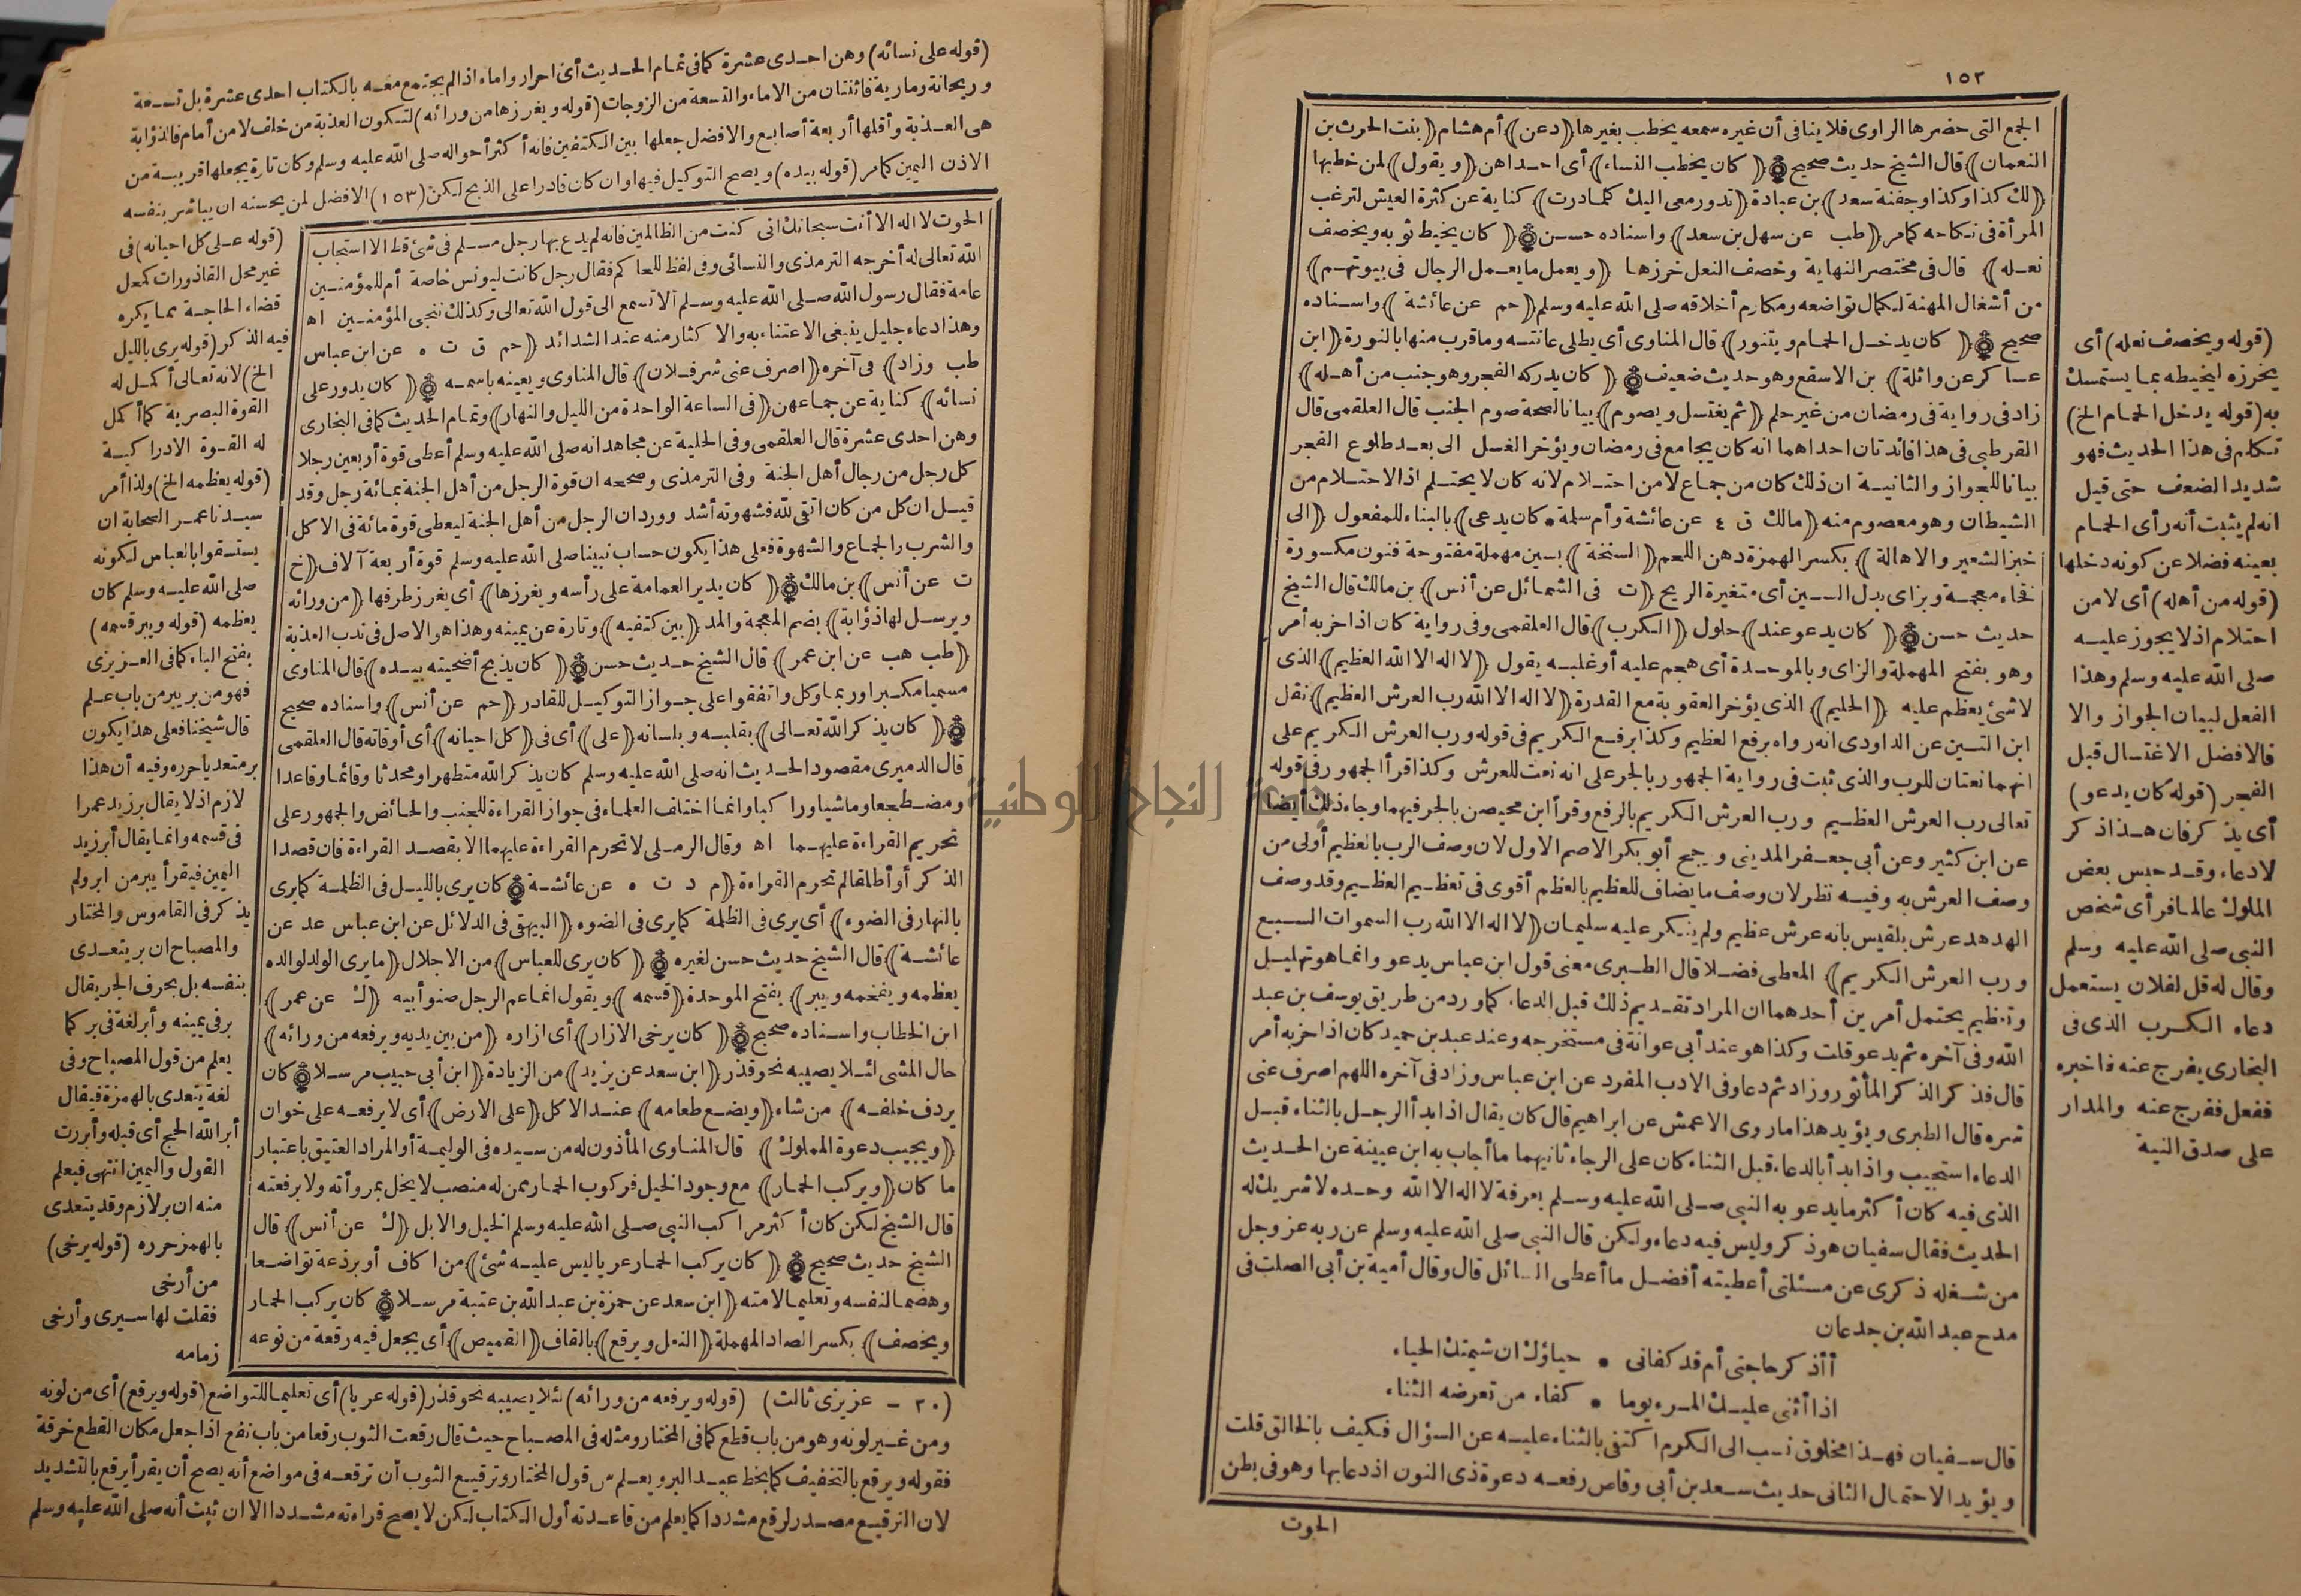 ١٥٢
الجمع التى حضرها الراوى فلا ينافى أن غيره سمعه يخطب بغيرها ﴿دعن﴾ أم هشام ﴿بنت الحرث بن
النعمان﴾ قال الشيخ حديث صحيح ﴿كان يخطب النساء﴾ أى احداهن ﴿ويقول﴾ لمن خطبها
﴿لك كذا وكذا وجفنة سعد﴾ بن عبادة ﴿تدور معى اليك كلما درت﴾ كناية عن كثرة العيش لترغب
المرأة فى نكاحه كمامر ﴿طب عن سهل بن سعد﴾ واسناده حسن ﴿كان يخيط ثوبه ويخصف
نعله﴾ قال فى مختصر النهاية وخصف النعل خرزها ﴿ويعمل ما يعمل الرجال فى بيوتهم﴾
من أشغال المهنة لكمال تواضعه ومكارم أخلاقه صلى الله عليه وسلم ﴿حم عن عائشة﴾ واسناده
صحيح ﴿كان يدخل الحمام ويتنور﴾ قال المناوى أى يطلى عانته وما قرب منها بالنورة ﴿ابن
عساكر عن واثلة﴾ بن الاسقع وهو حديث ضعيف ﴿كان يدركه الفجر وهو جنب من أهله﴾
زاد فى رواية فى رمضان من غير حلم ﴿ثم يغتسل ويصوم﴾ بيانا لصحة صوم الجنب قال العلقمى قال
القرطبى فى هذا فائدتان احداهما انه كان يجامع فى رمضان ويؤخر الغسل الى بعد طلوع الفجر
بيانا للجواز والثانية ان ذلك كان من جماع لا من احتلام لانه كان لا يحتلم اذ الاحتلام من
الشيطان وهو معصوم منه ﴿مالك ق ٤ عن عائشة وأم سلمة • كان يدعى﴾ بالبناء للمفعول ﴿الى
خبز الشعير والاهالة﴾ بكسر الهمزة دهن اللحم ﴿السنخة﴾ بسين مهملة مفتوحة فنون مكسورة
فخاء معجمة وبزاى بدل السين أى متغيرة الريح ﴿ت فى الشمائل عن أنس﴾ بن مالك قال الشيخ
حديث حسن ﴿كان يدعو عند﴾ حلول ﴿الكرب﴾ قال العلقمى وفى رواية كان اذا حزبه أمر
وهو بفتح المهملة والزاى وبالموحدة أى هجم عليه أو غلبه يقول ﴿لا اله الا الله العظيم﴾ الذى
لا شئ يعظم عليه ﴿الحليم﴾ الذى يؤخر العقوبة مع القدرة ﴿لا اله الا الله رب العرش العظيم﴾ نقل
ابن التين عن الداودى انه رواه برفع العظيم وكذا برفع الكريم فى قوله ورب العرش الكريم على
انهما نعتان للرب والذى ثبت فى رواية الجمهور بالجر على انه نعت للعرش وكذا قرأ الجمهور فى قوله
تعالى رب العرش العظيم ورب العرش الكريم بالرفع وقرأ ابن محيصن بالجر فيهما وجاء ذلك أيضا
عن ابن كثير وعن أبى جعفر المدينى ورجح أبو بكر الاصم الاول لان وصف الرب بالعظيم أولى من
وصف العرش به وفيه نظر لان وصف ما يضاف للعظيم بالعظم أقوى فى تعظيم العظيم وقد وصف
الهدهد عرش بلقيس بانه عرش عظيم ولم ينكر عليه سليمان ﴿لا اله الا الله رب السموات السبع
ورب العرش الكريم﴾ المعطى فضلا قال الطبرى معنى قول ابن عباس يدعو وانما هو تهليل
وتعظيم يحتمل أمرين أحدهما ان المراد تقديم ذلك قبل الدعاء كما ورد من طريق يوسف بن عبد
الله وفى آخره ثم يدعو قلت وكذا هو عند أبى عوانة فى مستخرجه وعند عبد بن حميد كان اذا حزبه أمر
قال فذكر الذكر المأثور وزاد ثم دعا وفى الادب المفرد عن ابن عباس وزاد فى آخره اللهم اصرف عنى
شره قال الطبرى ويؤيد هذا ما روى الاعمش عن ابراهيم قال كان يقال اذا بدأ الرجل بالثناء قبل
الدعاء استجيب واذا بدأ بالدعاء قبل الثناء كان على الرجاء ثانيهما ما أجاب به ابن عيينة عن الحديث
الذى فيه كان أكثر ما يدعو به النبى صلى الله عليه وسلم بعرفة لا اله الا الله وحده لا شريك له
الحديث فقال سفيان هو ذكر وليس فيه دعاء ولكن قال النبى صلى الله عليه وسلم عن ربه عز وجل
من شغله ذكرى عن مسئلتى أعطيته أفضل ما أعطى السائل قال وقال أمية بن أبى الصلت فى
مدح عبد الله بن جدعان
أأذكر حاجتى أم قد كفانى • حياؤك ان شيمتك الحياء
اذا أثنى عليك المرء يوما • كفاه من تعرضه الثناء
قال سفيان فهذا مخلوق نسب الى الكرم اكتفى بالثناء عليه عن السؤال فكيف بالخالق قلت
ويؤيد الاحتمال الثانى حديث سعد بن أبى وقاص رفعه دعوة ذى النون اذ دعا بها وهو فى بطن
الحوت
(قوله ويخصف نعله) أى
يخرزه ليخيطه بما يستمسك
به (قوله يدخل الحمام الخ)
تكلم فى هذا الحديث فهو
شديد الضعف حتى قيل
انه لم يثبت أنه رأى الحمام
بعينه فضلا عن كونه دخلها
(قوله من أهله) أى لا من
احتلام اذ لا يجوز عليه
صلى الله عليه وسلم وهذا
الفعل لبيان الجواز والا
فالافضل الاغتسال قبل
الفجر (قوله كان يدعو)
أى يذكر فان هذا ذكر
لا دعاء وقد حبس بعض
الملوك عالما فرأى شخص
النبى صلى الله عليه وسلم
وقال له قل لفلان يستعمل
دعاء الكرب الذى فى
البخارى يفرج عنه فاخبره
ففعل ففرج عنه والمدار
على صدق النية
(قوله على نسائه) وهن احدى عشرة كما فى تمام الحديث أى احرار واماء اذ لم يجتمع معه بالكتاب احدى عشرة بل تسعة
وريحانة ومارية فاثنتان من الاماء والتسعة من الزوجات (قوله ويغرزها من ورائه) لتكون العذبة من خلف لا من أمام فالذؤابة
هى العذبة وأقلها أربعة أصابع والافضل جعلها بين الكتفين فانه أكثر أحواله صلى الله عليه وسلم وكان تارة يجعلها قريبة من
الاذن اليمين كمامر (قوله بيده) ويصح التوكيل فيها وان كان قادرا على الذبح لكن (١٥٣) الافضل لمن يحسنه ان يباشر بنفسه
الحوت لا اله الا أنت سبحانك انى كنت من الظالمين فانه لم يدع بها رجل مسلم فى شئ قط الا استجاب
الله تعالى له أخرجه الترمذى والنسائى وفى لفظ للحاكم فقال رجل كانت ليونس خاصة أم للمؤمنين
عامة فقال رسول الله صلى الله عليه وسلم ألا تسمع الى قول الله تعالى وكذلك ننجى المؤمنين اه
وهذا دعاء جليل ينبغى الاعتناء به والاكثار منه عند الشدائد ﴿حم ق ت ه عن ابن عباس
طب وزاد﴾ فى آخره ﴿اصرف عنى شر فلان﴾ قال المناوى ويعينه باسمه ﴿كان يدور على
نسائه﴾ كناية عن جماعهن ﴿فى الساعة الواحدة من الليل والنهار﴾ وتمام الحديث كما فى البخارى
وهن احدى عشرة قال العلقمى وفى الحلية عن مجاهد انه صلى الله عليه وسلم أعطى قوة أربعين رجلا
كل رجل من رجال أهل الجنة وفى الترمذى وصححه ان قوة الرجل من أهل الجنة بمائة رجل وقد
قيل ان كل من كان اتقى لله فشهوته أشد وورد ان الرجل من أهل الجنة ليعطى قوة مائة فى الاكل
والشرب والجماع والشهوة فعلى هذا يكون حساب نبينا صلى الله عليه وسلم قوة أربعة آلاف ﴿خ
ت عن أنس﴾ بن مالك ﴿كان يدير العمامة على رأسه ويغرزها﴾ أى يغرز طرفها ﴿من ورائه
ويرسل لها ذؤابة﴾ بضم المعجمة والمد ﴿بين كتفيه﴾ وتارة عن يمينه وهذا هو الاصل فى ندب العذبة
﴿طب هب عن ابن عمر﴾ قال الشيخ حديث حسن ﴿كان يذبح أضحيته بيده﴾ قال المناوى
مسميا مكبرا وربما وكل واتفقوا على جواز التوكيل للقادر ﴿حم عن أنس﴾ واسناده صحيح
﴿كان يذكر الله تعالى﴾ بقلبه وبلسانه ﴿على﴾ أى فى ﴿كل احيانه﴾ أى أوقاته قال العلقمى
قال الدميرى مقصود الحديث انه صلى الله عليه وسلم كان يذكر الله متطهرا ومحدثا وقائما وقاعدا
ومضطجعا وماشيا وراكبا وانما اختلف العلماء فى جواز القراءة للجنب والحائض والجمهور على
تحريم القراءة عليهما اه وقال الرملى لا تحرم القراءة عليهما الا بقصد القراءة فان قصدا
الذكر أو أطلقا لم تحرم القراءة ﴿م د ت ه عن عائشة كان يرى بالليل فى الظلمة كما يرى
بالنهار فى الضوء﴾ أى يرى فى الظلمة كما يرى فى الضوء ﴿البيهقى فى الدلائل عن ابن عباس عد عن
عائشة﴾ قال الشيخ حديث حسن لغيره ﴿كان يرى للعباس﴾ من الاجلال ﴿ما يرى الولد لوالده
يعظمه ويفخمه ويبر﴾ بفتح الموحدة ﴿قسمه﴾ ويقول انما عم الرجل صنو أبيه ﴿ك عن عمر﴾
ابن الخطاب واسناده صحيح ﴿كان يرخى الازار﴾ أى ازاره ﴿من بين يديه ويرفعه من ورائه﴾
حال المشى لئلا يصيبه نحو قذر ﴿ابن سعد عن يزيد﴾ من الزيادة ﴿ابن أبى حبيب مرسلا كان
يردف خلفه﴾ من شاء ﴿ويضع طعامه﴾ عند الاكل ﴿على الارض﴾ أى لا يرفعه على خوان
﴿ويجيب دعوة المملوك﴾ قال المناوى المأذون له من سيده فى الوليمة أو المراد العتيق باعتبار
ما كان ﴿ويركب الحمار﴾ مع وجود الخيل فركوب الحمار ممن له منصب لا يخل بمروأته ولا برفعته
قال الشيخ لكن كان أكثر مراكب النبى صلى الله عليه وسلم الخيل والابل ﴿ك عن أنس﴾ قال
الشيخ حديث صحيح ﴿كان يركب الحمار عريا ليس عليه شئ﴾ من اكاف أو برذعة تواضعا
وهضما لنفسه وتعليما لامته ﴿ابن سعد عن حمزة بن عبد الله بن عتبة مرسلا كان يركب الحمار
ويخصف﴾ بكسر الصاد المهملة ﴿النعل ويرقع﴾ بالقاف ﴿القميص﴾ أى يجعل فيه رقعة من نوعه
(قوله على كل احيانه) فى
غير محل القاذورات كمحل
قضاء الحاجة مما يكره
فيه الذكر (قوله يرى بالليل
الخ) لانه تعالى أكمل له
القوة البصرية كما أكمل
له القوة الادراكية
(قوله يعظمه الخ) ولذا أمر
سيدنا عمر الصحابة ان
يستسقوا بالعباس لكونه
صلى الله عليه وسلم كان
يعظمه (قوله ويبر قسمه)
بفتح الباء كما فى العزيزى
فهو من بر يبر من باب علم
قال شيخنا فعلى هذا يكون
بر متعديا حرره وفيه أن هذا
لازم اذ لا يقال بر زيد عمرا
فى قسمه وانما يقال أبر زيد
اليمين فيقرأ يبر من ابر ولم
يذكر فى القاموس والمختار
والمصباح ان بر يتعدى
بنفسه بل بحرف الجر يقال
بر فى يمينه وأبر لغة فى بر كما
يعلم من قول المصباح وفى
لغة يتعدى بالهمزة فيقال
أبر الله الحج أى قبله وأبررت
القول واليمين انتهى فيعلم
منه ان بر لازم وقد يتعدى
بالهمز حرره (قوله يرخى)
من أرخى
فقلت لها سيرى وأرخى
زمامه
(٢٠ - عزيزى ثالث) (قوله ويرفعه من ورائه) لئلا يصيبه نحو قذر (قوله عريا) أى تعليما للتواضع (قوله ويرقع) أى من لونه
ومن غير لونه وهو من باب قطع كما فى المختار ومثله فى المصباح حيث قال رقعت الثوب رقعا من باب نفع اذا جعل مكان القطع خرقة
فقوله ويرقع بالتخفيف كما بخط عبد البر ويعلم من قول المختار وترقيع الثوب أن ترقعه فى مواضع أنه يصح أن يقرأ يرقع بالتشديد
لان الترقيع مصدر لرقع مشددا كما يعلم من قاعدته أول الكتاب لكن لا يصح قراءته مشددا الا ان ثبت أنه صلى الله عليه وسلم
جامعة النجاح الوطنية